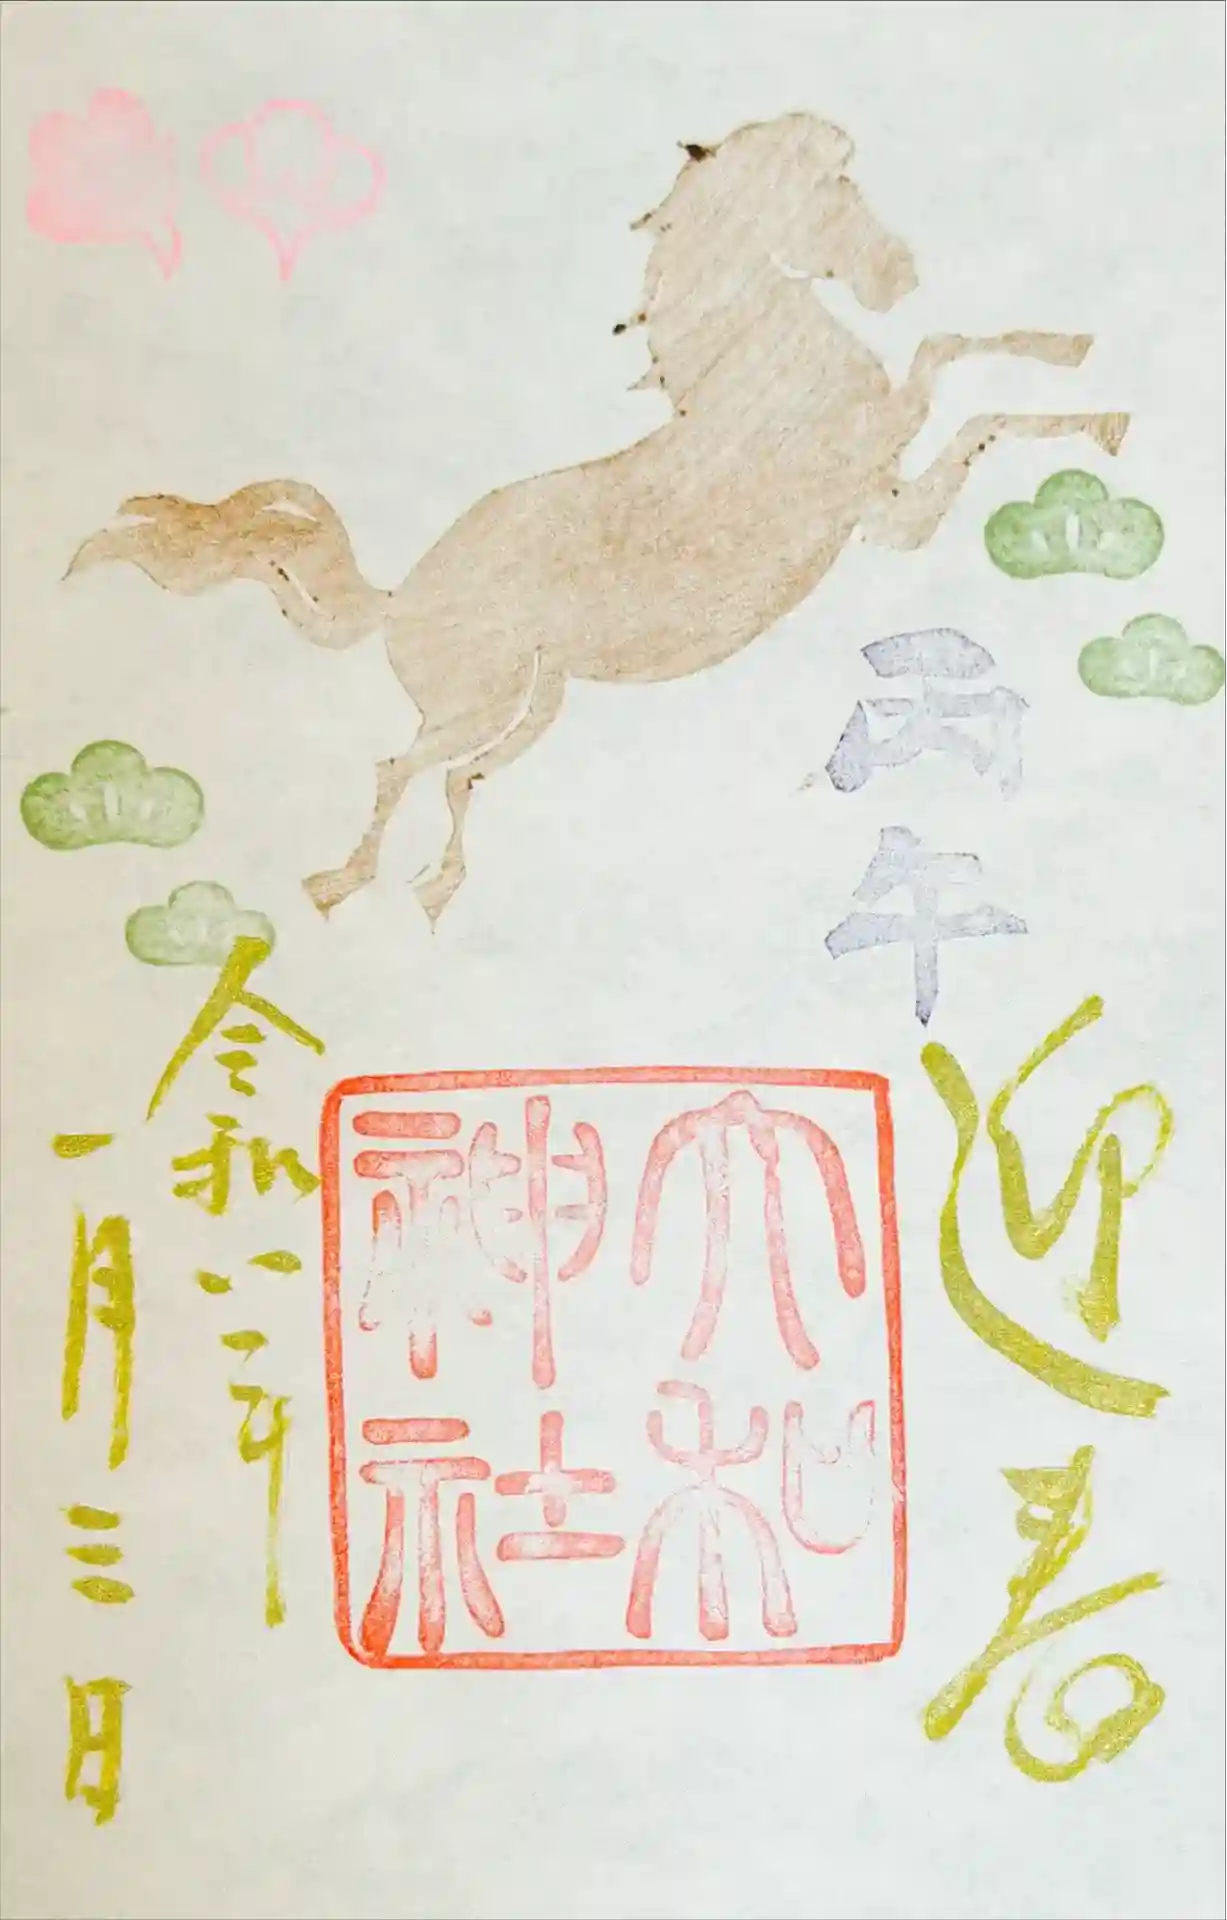 丙午
迎春
大和神社
令和八年
一月三日